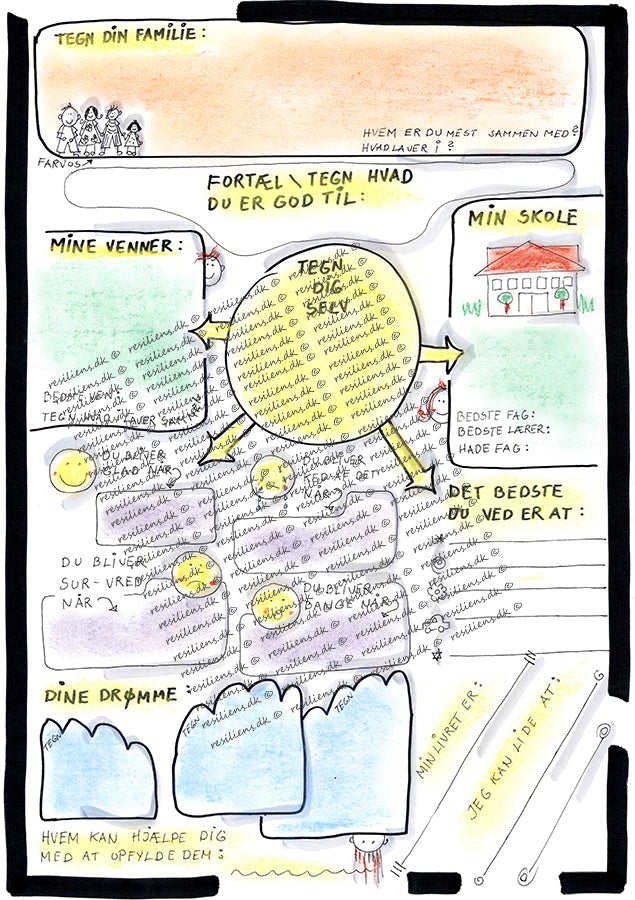 TEGN DIN FAMILIE:
HVEM ER DU MEST SAMMEN MED?
HVAD LAVER I?
FARVOS
FORTÆL \ TEGN HVAD
DU ER GOD TIL:
MIN SKOLE
MINE VENNER:
TEGN
DIG
SELV
BEDSTE VEN:
TEGN HVAD I LAVER SAMMEN
BEDSTE FAG:
BEDSTE LÆRER:
HADE FAG:
DU BLIVER
GLAD NÅR
DU BLIVER
KED AF DET
NÅR
DET BEDSTE
DU VED ER AT:
DU BLIVER
SUR-VRED
NÅR
DU BLIVER
BANGE NÅR
DINE DRØMME:
TEGN
TEGN
TEGN
MIN LIVRET ER:
JEG KAN LIDE AT:
HVEM KAN HJÆLPE DIG
MED AT OPFYLDE DEM:
resiliens.dk ©